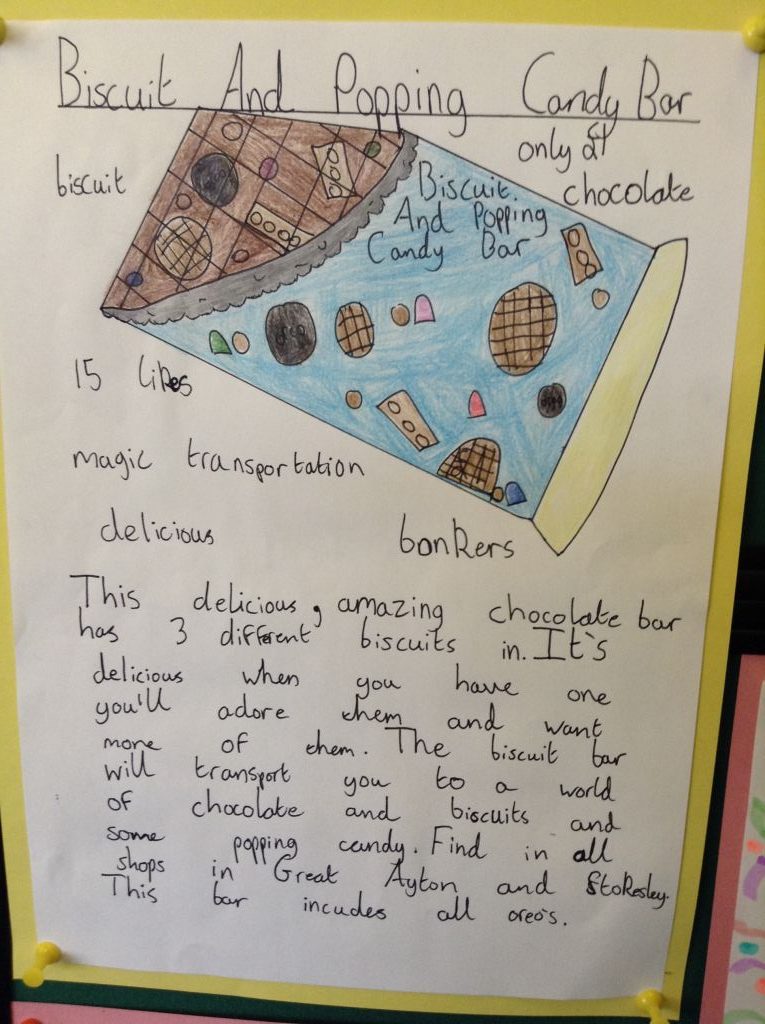 Biscuit And Popping Candy Bar
only at
biscuit
chocolate
Biscuit.
And Popping
Candy Bar
15 likes
magic transportation
delicious
bonkers
This delicious, amazing chocolate bar
has 3 different biscuits in. It's
delicious when you have one
you'll adore them and want
more of them. The biscuit bar
will transport you to a world
of chocolate and biscuits and
some popping candy. Find in all
shops in Great Ayton and Stokesley.
This bar incudes all oreo's.